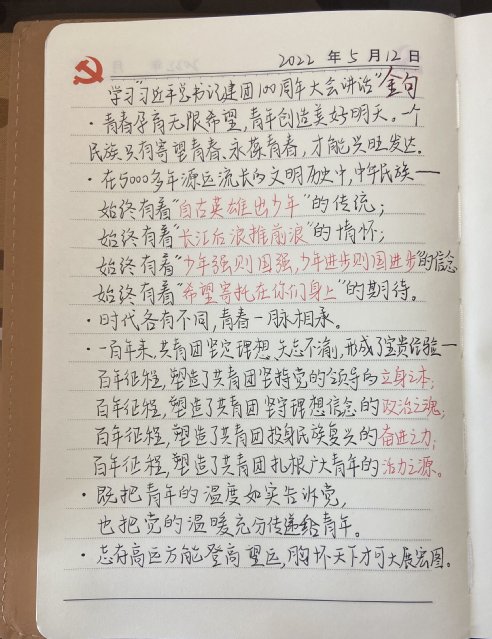 2022 年 5 月 12 日
学习"习近平总书记建团100周年大会讲话"金句
·青春孕育无限希望,青年创造美好明天。一个
民族只有寄望青春、永葆青春,才能兴旺发达.
·在5000多年源远流长的文明历史中,中华民族一
始终有着"自古英雄出少年"的传统;
始终有着"长江后浪推前浪"的情怀;
始终有着"少年强则国强,少年进步则国进步"的信念
始终有着"希望寄托在你们身上"的期待。
·时代各有不同,青春一脉相承。
·一百年来,共青团坚定理想、矢志不渝,形成了宝贵经验一
百年征程,塑造了共青团坚持党的领导的立身之本;
百年征程,塑造了共青团坚守理想信念的政治之魂;
百年征程,塑造了共青团投身民族复兴的奋进之力;
百年征程,塑造了共青团扎根广大青年的活力之源。
·既把青年的温度如实告诉党,
也把党的温暖充分传递给青年。
·志存高远方能登高望远,胸怀天下才可大展宏图。